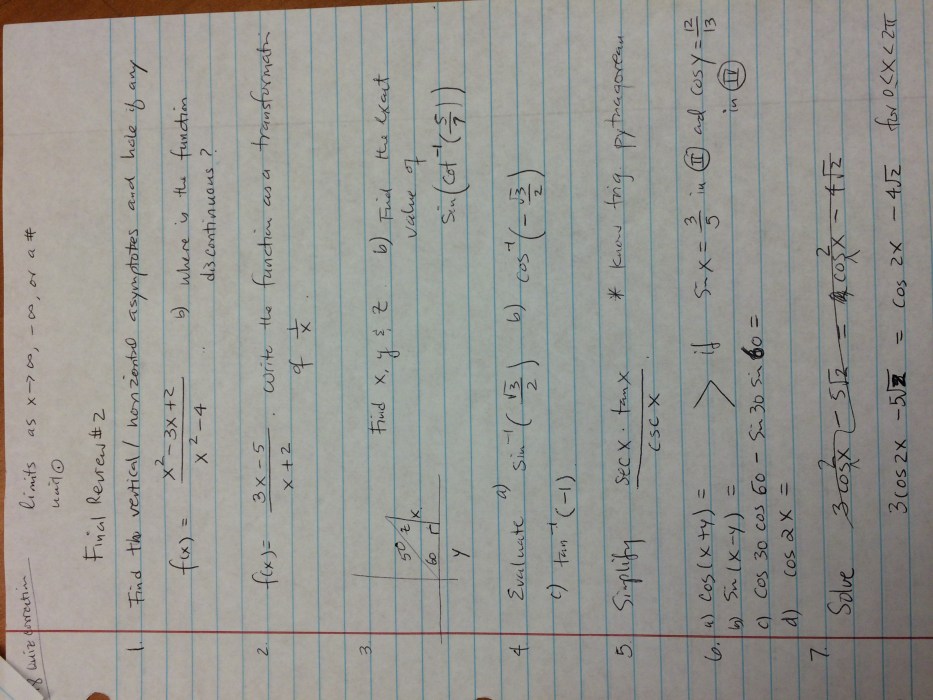 Quiz correction
limits as x→∞, -∞, or a #
unit ⊙
Final Review #2
1. Find the vertical / horizontal asymptotes and hole if any
f(x) = (x² - 3x + 2)/(x² - 4) . b) where is the function
discontinuous?
2. f(x) = (3x - 5)/(x + 2) . write the function as a transformati
of 1/x .
3. Find x, y & z b) Find the exact
value of
sin(cot⁻¹(5/7))
50 z x
60
y
4 Evaluate a) sin⁻¹(√3/2) b) cos⁻¹(-√3/2)
c) tan⁻¹(-1)
5. Simplify (sec x · tan x)/(csc x) . * know trig. pythagorean
6. a) cos(x+y) = > if sin x = 3/5 in II and cos y = 12/13
b) sin(x-y) = in IV
c) cos 30 cos 60 - sin 30 sin 60 =
d) cos 2x =
7. Solve 3 cos²x - 5√2 = cos²x - 4√2
3cos 2x - 5√2 = cos 2x - 4√2 for 0<x<2π